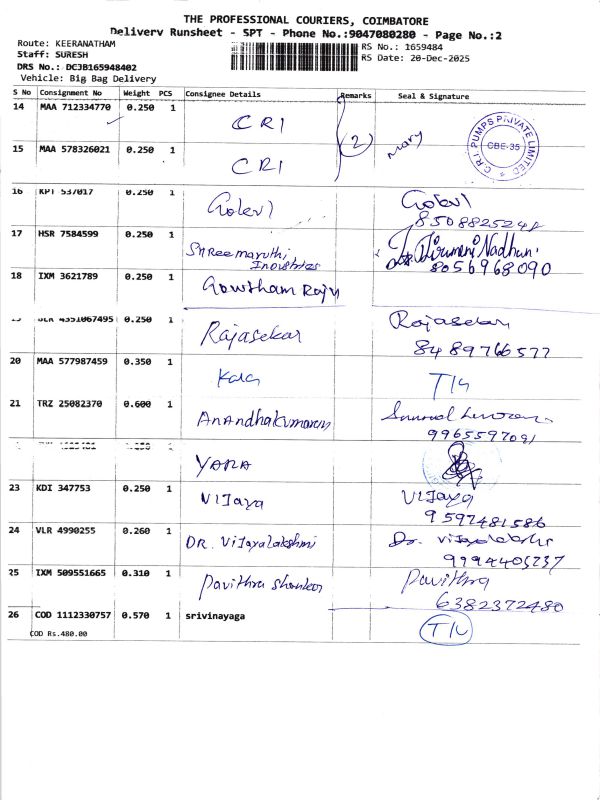 THE PROFESSIONAL COURIERS, COIMBATORE
Delivery Runsheet - SPT - Phone No.:9047080280 - Page No.:2
Route: KEERANATHAM
Staff: SURESH
DRS No.: DCJB165948402
Vehicle: Big Bag Delivery
RS No.: 1659484
RS Date: 20-Dec-2025
S No Consignment No Weight PCS Consignee Details Remarks Seal & Signature
14 MAA 712334770 0.250 1 CRI
(2) Mary
C.R.I. PUMPS PRIVATE LIMITED CBE-35
15 MAA 578326021 0.250 1 CRI
16 KPT 537017 0.250 1
17 HSR 7584599 0.250 1 Shreemaruthi Industries
8056968090
18 IXM 3621789 0.250 1 Gowtham Raju
4351067495 0.250 1 Rajasekar Rajasekar
8489766577
20 MAA 577987459 0.350 1 Kala T/L
21 TRZ 25082370 0.600 1 Anandhakumaran
9965597091
YARA
23 KDI 347753 0.250 1 Vijaya Vijaya
9597481586
24 VLR 4990255 0.260 1 DR. Vijayalakshmi Dr. Vijayalakshmi
25 IXM 509551665 0.310 1 Pavithra Shankar Pavithra
6382372480
26 COD 1112330757 0.570 1 srivinayaga T/L
COD Rs.480.00